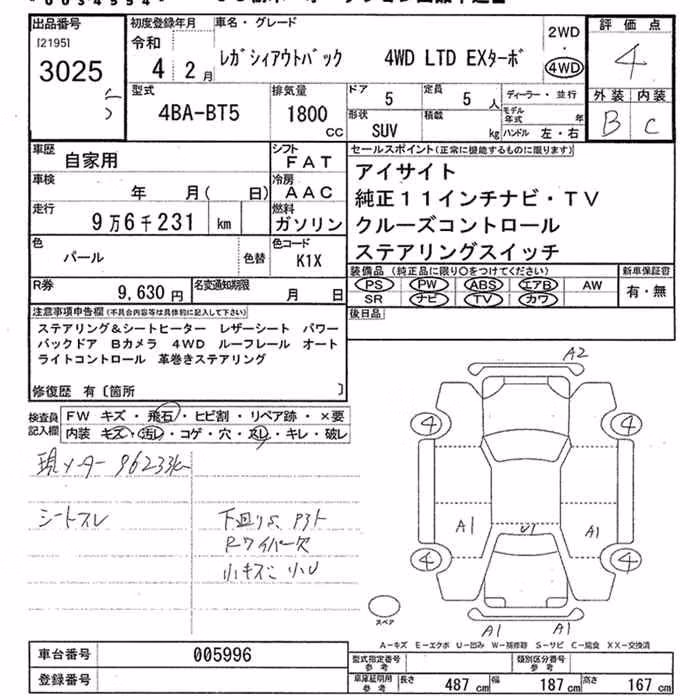 出品番号 初度登録年月 車名・グレード 2WD 評価点
[2195] 令和 レガシィアウトバック 4WD LTD EXターボ ・ 4
3025 4 2月 4WD 外装 内装
型式 排気量 ドア 定員 ディーラー・並行 B C
4BA-BT5 1800 CC 5 5 人 モデル年式 年
形状 SUV 積載 kg ハンドル 左・右
車歴 自家用 シフト FAT セールスポイント(正常に機能するものに限ります)
車検 年 月( 日) 冷房 AAC アイサイト
走行 9万6千231 km 燃料 ガソリン 純正11インチナビ・TV
色 パール 色替 色コード K1X クルーズコントロール
ステアリングスイッチ
R券 9,630円 名変通知期限 月 日
装備品(純正品に限り○をつけてください) 新車保証書
PS PW ABS エアB AW 有・無
SR ナビ TV カワ
注意事項申告欄(不具合内容等は具体的に記入して下さい) 後日品
ステアリング&シートヒーター レザーシート パワー
バックドア Bカメラ 4WD ルーフレール オート
ライトコントロール 革巻きステアリング
修復歴 有〔箇所 〕
検査員記入欄 FW キズ・飛石・ヒビ割・リペア跡・×要
内装 キズ・汚レ・コゲ・穴・スレ・キレ・破レ
現メーター 96233km
シートスレ
Rワイパー欠
小キズ 小U
A2
4 4
A1 U1 A1
4 4
スペア
A1 A1
A-キズ E-エクボ U-凹み W-補修跡 S-サビ C-腐食 XX-交換済
車台番号 005996 型式指定番号 参考 類別区分番号 参考
登録番号 車庫証明用 参考 長さ 487cm 幅 187cm 高さ 167cm